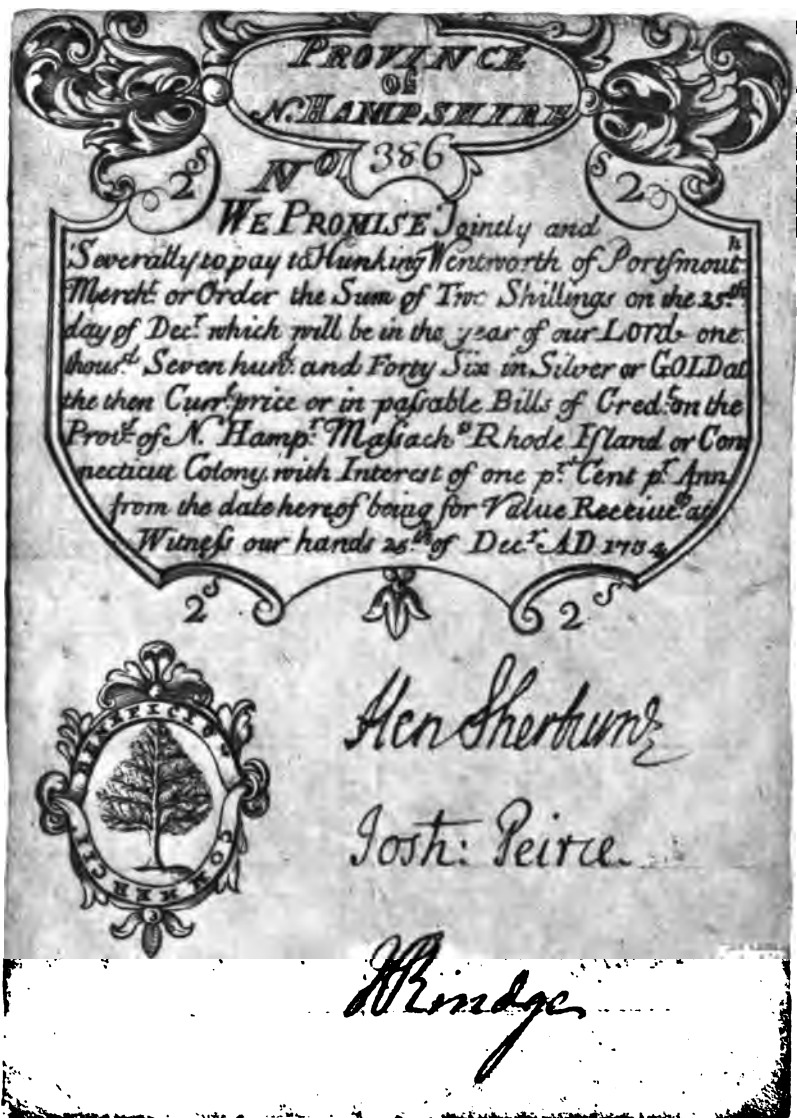 PROVINCE
OF
N. HAMPSHIRE
No 386
2s 2s
WE PROMISE Jointly and
Severally to pay to Hunking Wentworth of Portsmouth
Mercht. or Order the Sum of Two Shillings on the 25.th
day of Decr. which will be in the year of our LORD one
thousd. Seven hund. and Forty Six in Silver or GOLD at
the then Currt. price or in passable Bills of Credt. on the
Provce. of N. Hampr. Massachts. Rhode Island or Con
necticut Colony with Interest of one pr. Cent pr. Ann
from the date hereof being for Value Receiued as
Witness our hands 25.th of Decr. AD 1734
2s 2s
BENEFICIUM
COMMERCII
Hen Sherburne
Josh: Peirce
J Rindge